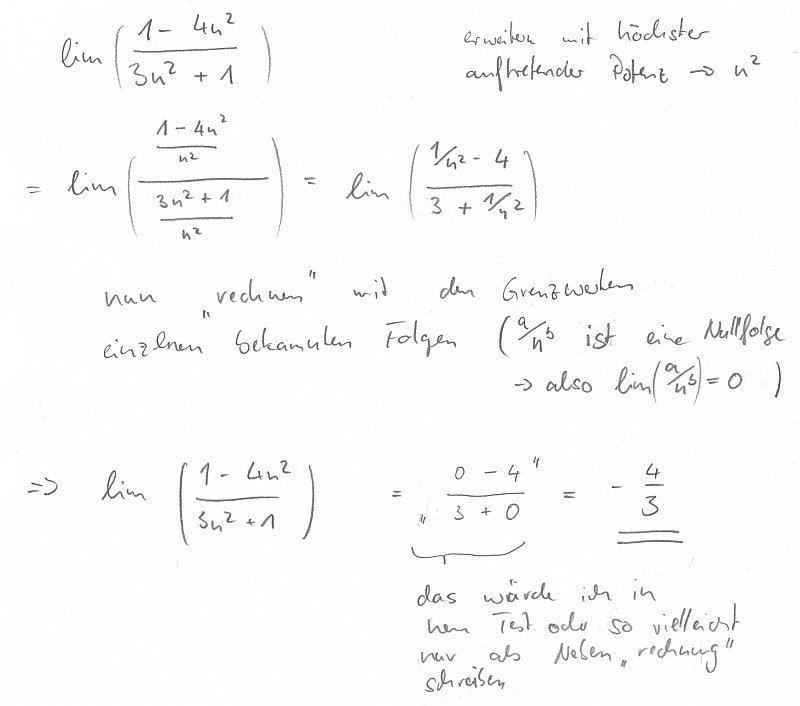 lim ( (1 - 4n²) / (3n² + 1) ) erweitern mit höchster
auftretender Potenz → n²
= lim ( ((1 - 4n²) / n²) / ((3n² + 1) / n²) ) = lim ( (1/n² - 4) / (3 + 1/n²) )
nun „rechnen" mit den Grenzwerten
einzelnen bekannten Folgen ( a/n^b ist eine Nullfolge
→ also lim(a/n^b) = 0 )
⇒ lim ( (1 - 4n²) / (3n² + 1) ) = „ (0 - 4) / (3 + 0) " = - 4/3
das würde ich in
nem Test oder so vielleicht
nur als Neben„rechnung"
schreiben